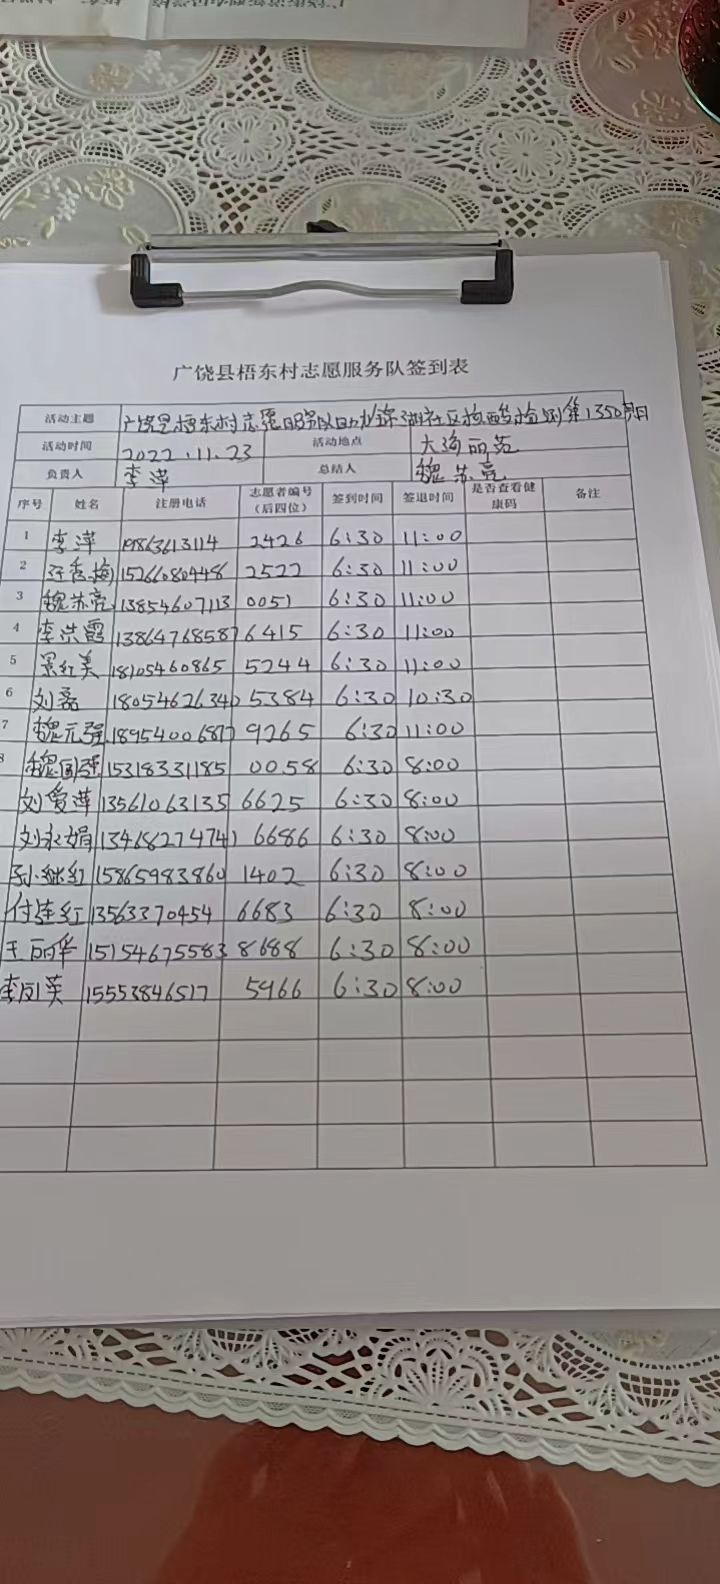 广饶县梧东村志愿服务队签到表
活动主题 广饶县梧东村志愿服务队助力锦湖社区核酸检测第1350期
活动时间 2022.11.23 活动地点 大海丽苑
负责人 李萍 总结人 魏苏亮
序号 姓名 注册电话 志愿者编号（后四位） 签到时间 签退时间 是否查看健康码 备注
1 李萍 19863613114 2426 6:30 11:00
2 秀梅 15266080448 2522 6:30 11:00
3 魏苏亮 13854607113 0051 6:30 11:00
4 李洪霞 13864768587 6415 6:30 11:00
5 景红美 18105460865 5244 6:30 11:00
6 刘磊 18054626340 5384 6:30 10:30
7 魏元强 18954006877 9265 6:30 11:00
8 魏国强 15318331185 0058 6:30 8:00
刘爱萍 13561063135 6625 6:30 8:00
刘永娟 13468274741 6686 6:30 8:00
孙继红 15865983860 1402 6:30 8:00
付连红 13563370454 6683 6:30 8:00
王丽华 15154675583 8688 6:30 8:00
李凤英 15553846517 5966 6:30 8:00